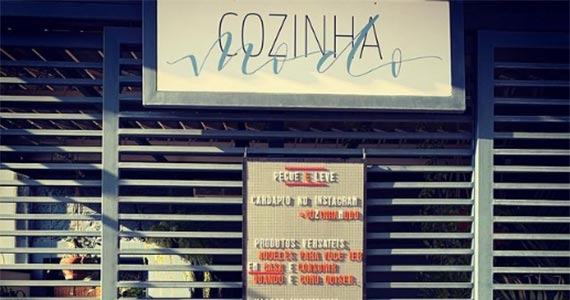 COZINHA
modo
PEGUE E LEVE
CARDAPIO NO INSTAGRAM
PRODUTOS VERSATEIS
AQUELES PARA VOCE TER
EM CASA E CONSUMIR
QUANDO E COMO QUISER